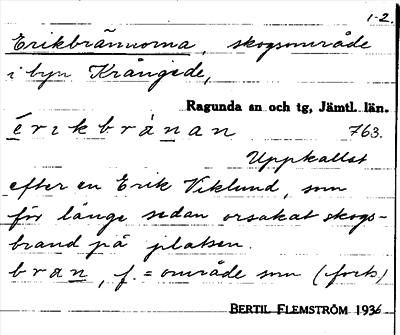 1-2.
Erikbrännorna, skogsområde
i byn Krångede,
Ragunda sn och tg, Jämtl. län.
érikbrànan 763.
Uppkallat
efter en Erik Viklund, som
för länge sedan orsakat skogs-
brand på platsen.
bran, f. = område som (forts)
BERTIL FLEMSTRÖM 1936